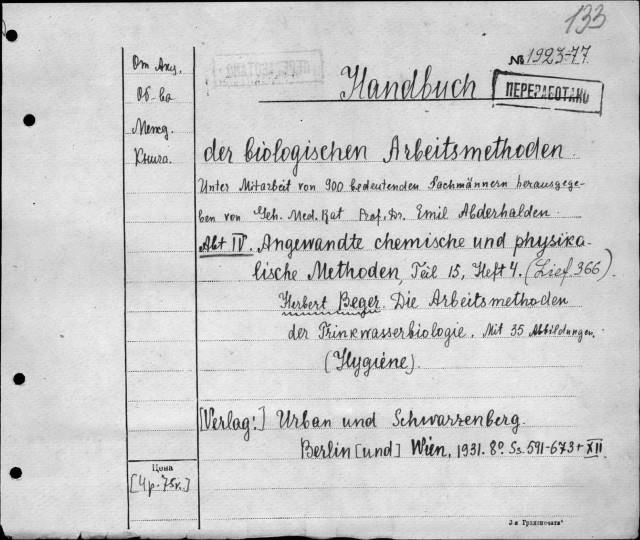 133
№ 1923-77
От Акц.
Об-ва
Межд.
Книга.
Handbuch
ПЕРЕРАБОТАНО
der biologischen Arbeitsmethoden.
Unter Mitarbeit von 900 bedeutenden Fachmännern herausgege-
ben von Geh. Med. Rat Prof. Dr. Emil Abderhalden.
Abt IV. Angewandte chemische und physika-
lische Methoden, Teil 15, Heft 4. (Lief. 366).
Herbert Beger. Die Arbeitsmethoden
der Trinkwasserbiologie. Mit 35 Abbildungen.
(Hygiene).
[Verlag:] Urban und Schwarzenberg.
Berlin [und] Wien, 1931. 8º. Ss. 591-673 + XII
Цена
[4 р. 75 к.]
3-я Градопечать